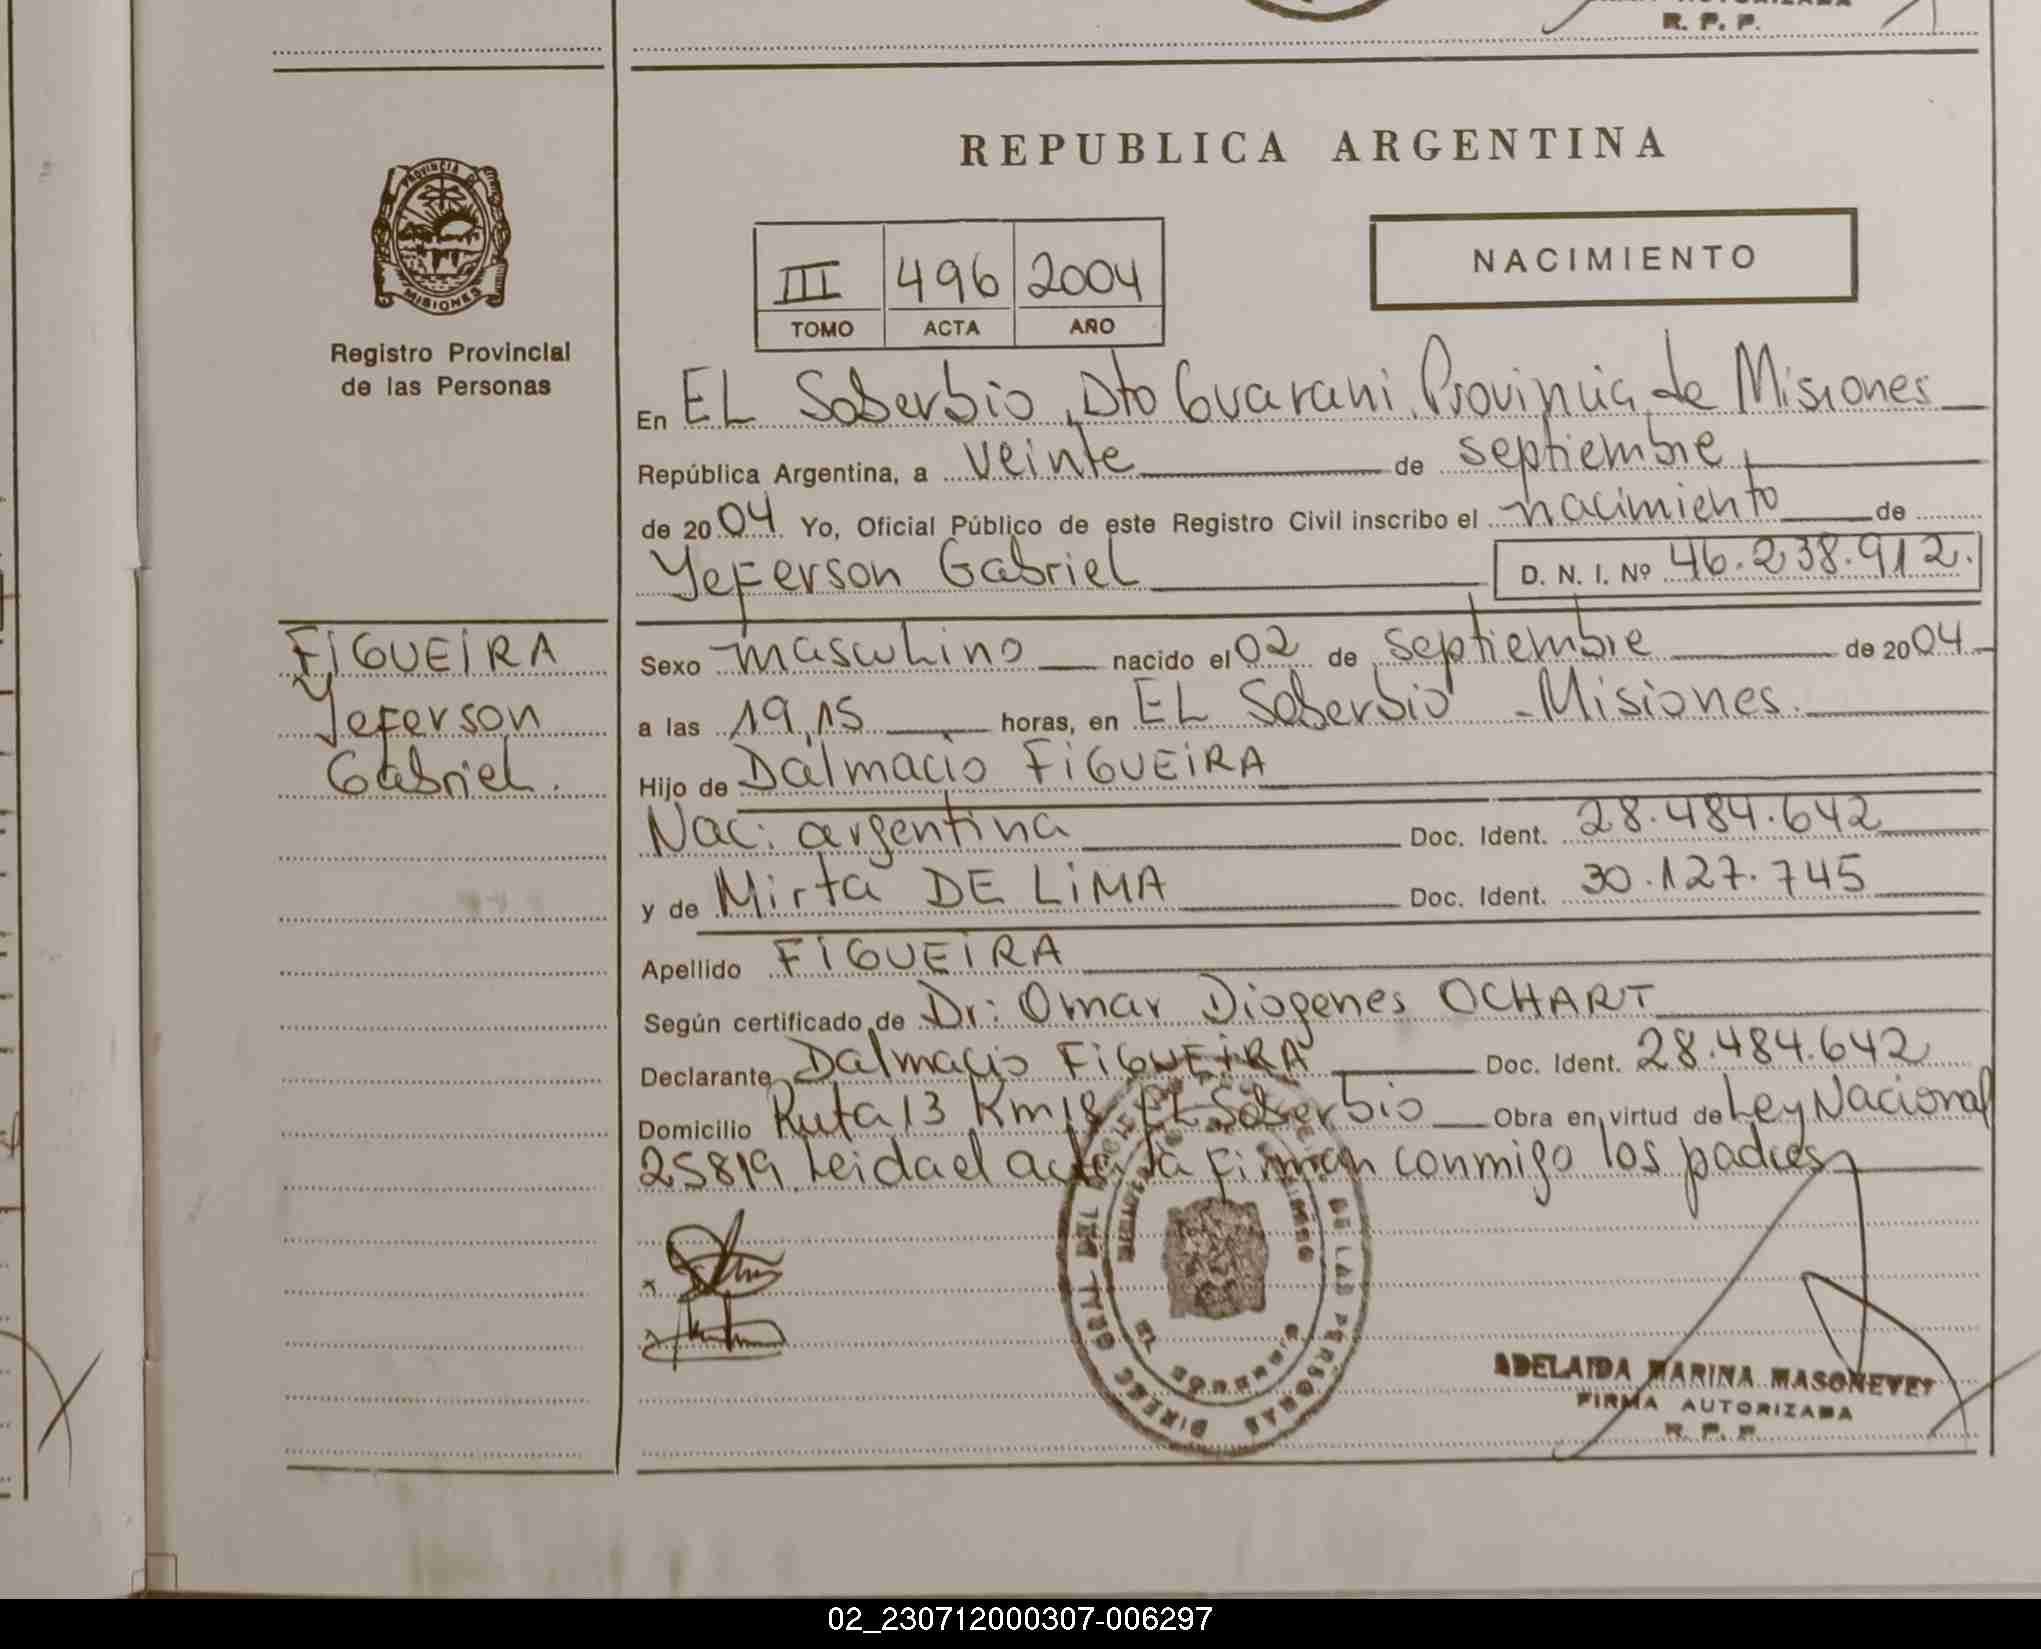 R. P. P.
PROVINCIA DE
MISIONES
Registro Provincial
de las Personas
REPUBLICA ARGENTINA
III 496 2004
TOMO ACTA AÑO
NACIMIENTO
En EL Soberbio, Dto Guarani, Provincia de Misiones
República Argentina, a veinte de septiembre
de 2004 Yo, Oficial Público de este Registro Civil inscribo el nacimiento de
Yeferson Gabriel D. N. I. Nº 46.238.912.
FIGUEIRA
Yeferson
Gabriel.
Sexo masculino nacido el 02 de septiembre de 2004
a las 19,15 horas, en EL Soberbio - Misiones.
Hijo de Dalmacio FIGUEIRA
Nac: argentina Doc. Ident. 28.484.642
y de Mirta DE LIMA Doc. Ident. 30.127.745
Apellido FIGUEIRA
Según certificado de Dr: Omar Diogenes OCHART
Declarante Dalmacio FIGUEIRA Doc. Ident. 28.484.642
Domicilio Ruta 13 Km 18 EL Soberbio Obra en virtud de Ley Nacional
25819. Leida el acta la firman conmigo los padres
DE LAS PERSONAS
DIREC GRAL DEL
ADELAIDA MARINA
FIRMA AUTORIZADA
R. P. P.
02_230712000307-006297